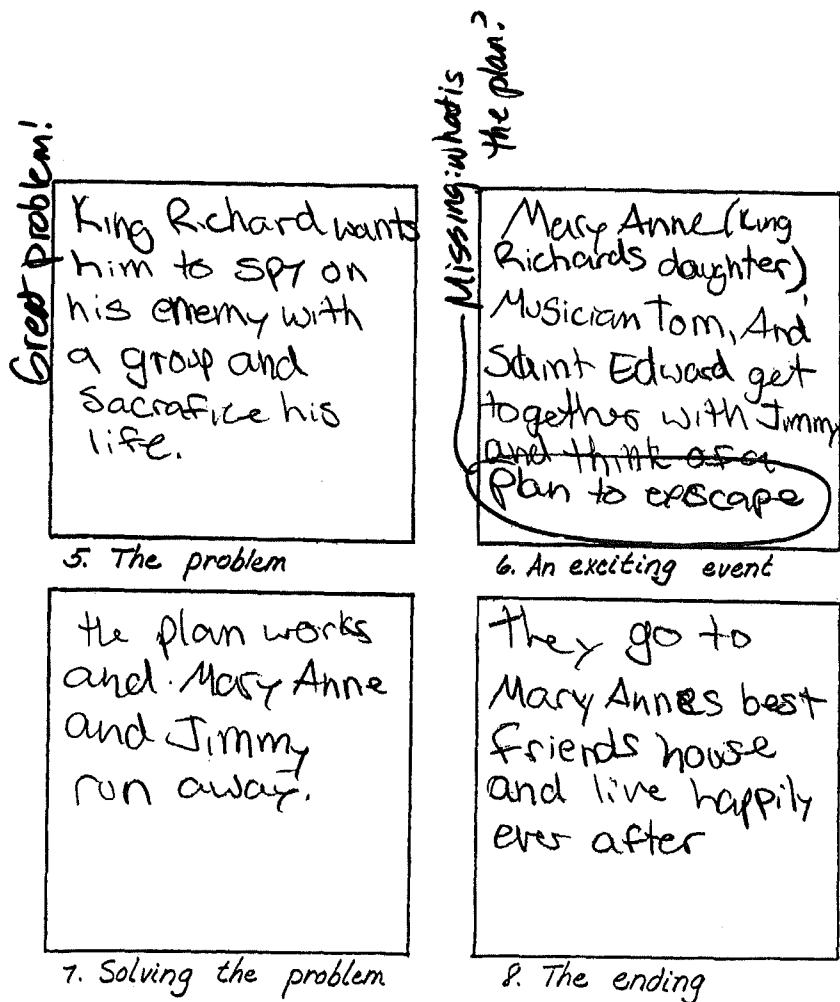 Great problem!
King Richard wants
him to spy on
his enemy with
a group and
sacrafice his
life.
5. The problem
Missing: what is
the plan?
Mary Anne (King
Richards daughter)
Musician Tom, And
Saint Edward get
together with Jimmy
and think of a
plan to exscape
6. An exciting event
the plan works
and Mary Anne
and Jimmy
run away.
7. Solving the problem
They go to
Mary Annes best
friends house
and live happily
ever after
8. The ending